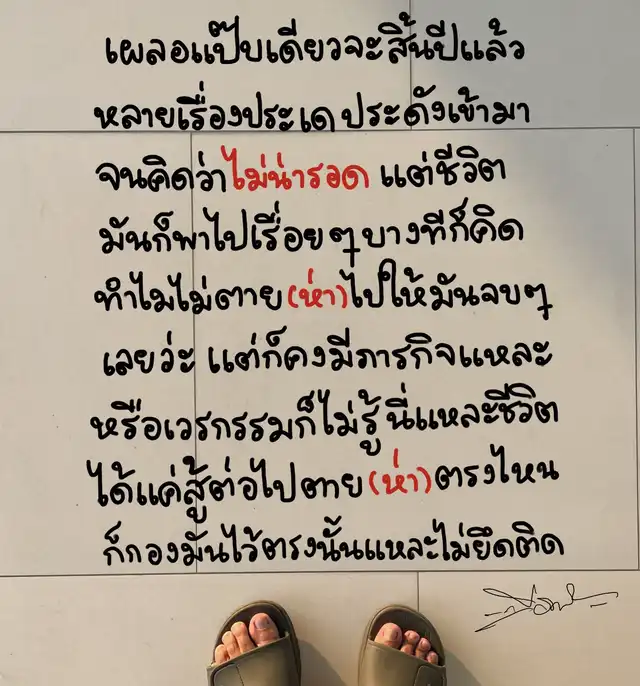 เผลอแป๊บเดียวจะสิ้นปีแล้ว
หลายเรื่องประเดประดังเข้ามา
จนคิดว่าไม่น่ารอด แต่ชีวิต
มันก็พาไปเรื่อยๆ บางทีก็คิด
ทำไมไม่ตาย(ห่า)ไปให้มันจบๆ
เลยว่ะ แต่ก็คงมีภารกิจแหละ
หรือเวรกรรมก็ไม่รู้ นี่แหละชีวิต
ได้แค่สู้ต่อไป ตาย(ห่า)ตรงไหน
ก็กองมันไว้ตรงนั้นแหละไม่ยึดติด